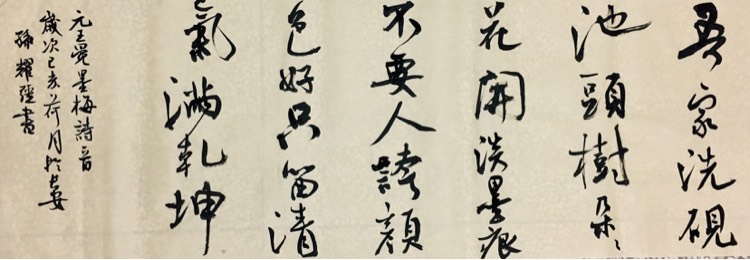 吾家洗硯
池頭樹朵〻
花開淡墨痕
不要人誇顏
色好只留清
氣滿乾坤
元王冕墨梅詩一首
歲次己亥荷月於長安
孫耀書